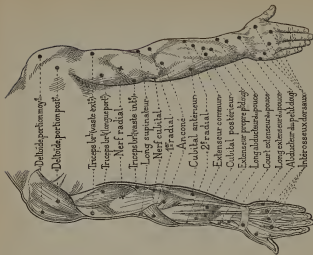 Deltoïde portion moy.
Deltoïde portion post.
Triceps br. (vaste ext.)
Triceps br. (longue port.)
Nerf radial
Triceps br. (vaste int.)
Long supinateur
Nerf cubital
1er radial
Anconé
Cubital antérieur
2e radial
Extenseur commun
Cubital postérieur
Extenseur propre pl. d.
Long abducteur du pouce
Court extenseur du pouce
Long extenseur d. pouce
Abducteur du petit doigt
Interosseux dorsaux